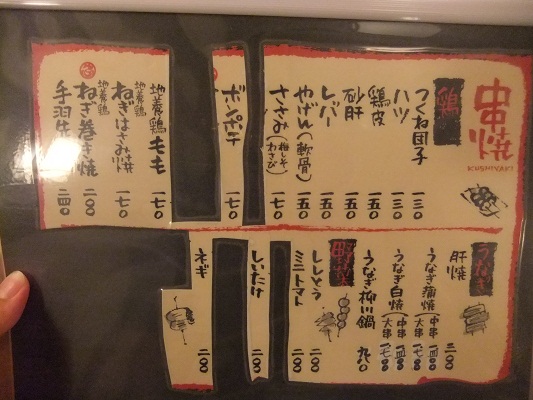 串焼
KUSHIYAKI
鶏
つくね団子 一三〇
ハツ 一三〇
鶏皮 一五〇
砂肝 一五〇
レバー 一五〇
やげん(軟骨) 一五〇
ささみ(梅しそ わさび) 一七〇
ボンボチ 一七〇
地養鶏 もも 一七〇
地養鶏 ねぎはさみ焼 一七〇
ねぎ巻き焼 二〇〇
手羽先 二四〇
うなぎ
肝焼 三〇〇
うなぎ蒲焼(中串)
(大串)
うなぎ白焼(中串)
(大串)
うなぎ柳川鍋
野菜
ししとう 二〇〇
ミニトマト 二〇〇
しいたけ 二〇〇
ネギ 二〇〇